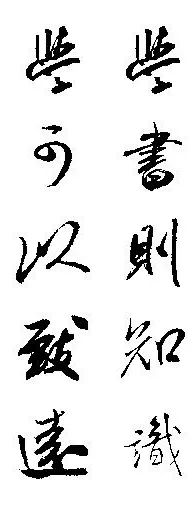 學書則知識
學可以致遠